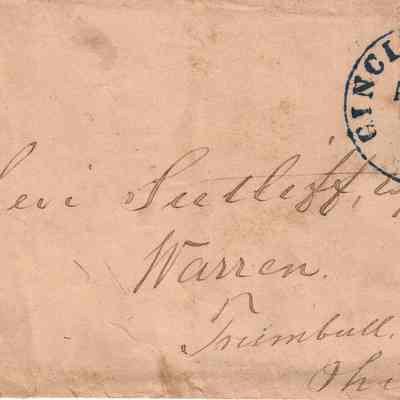 CINCI
Levi Sutliff,
Warren.
Trumbull.
Ohi